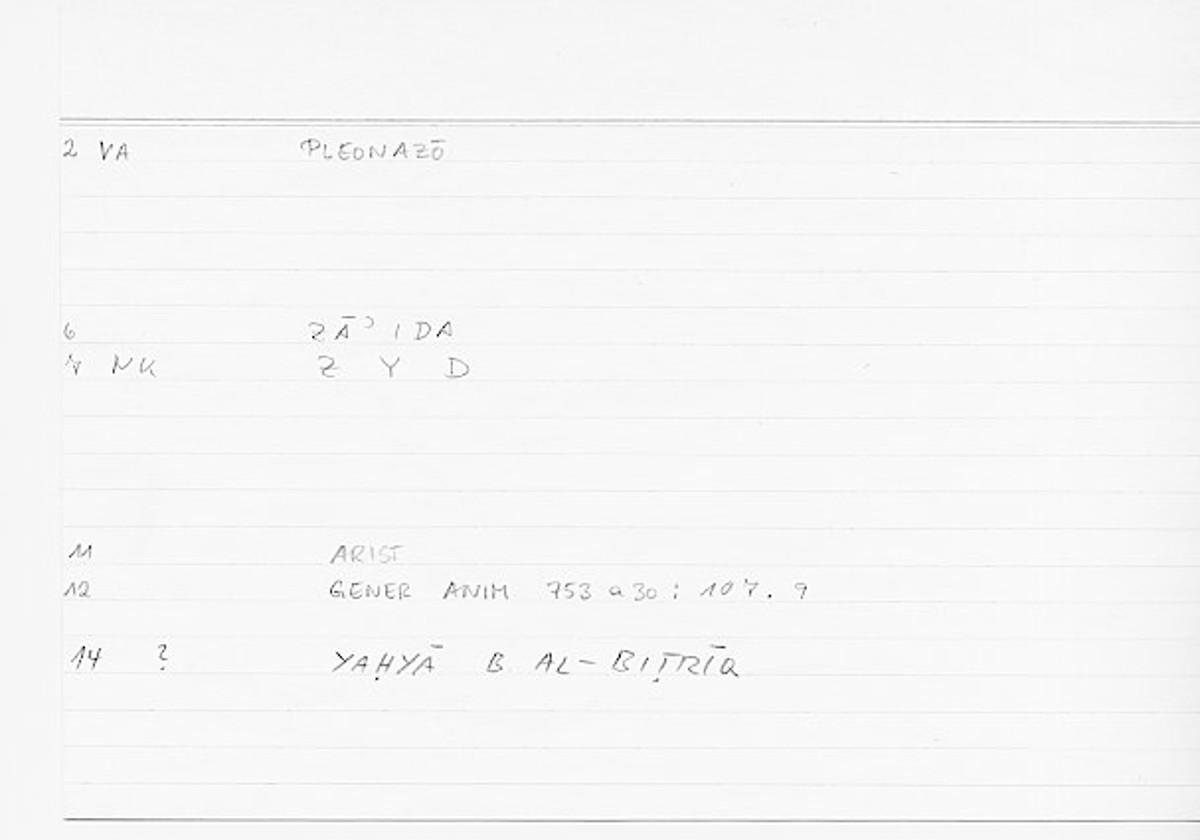 2 VA PLEONAZŌ
6 ZĀʾIDA
7 NK Z Y D
11 ARIST
12 GENER ANIM 753 a 30 : 107. 9
14 ? YAḤYĀ B AL-BIṬRĪQ